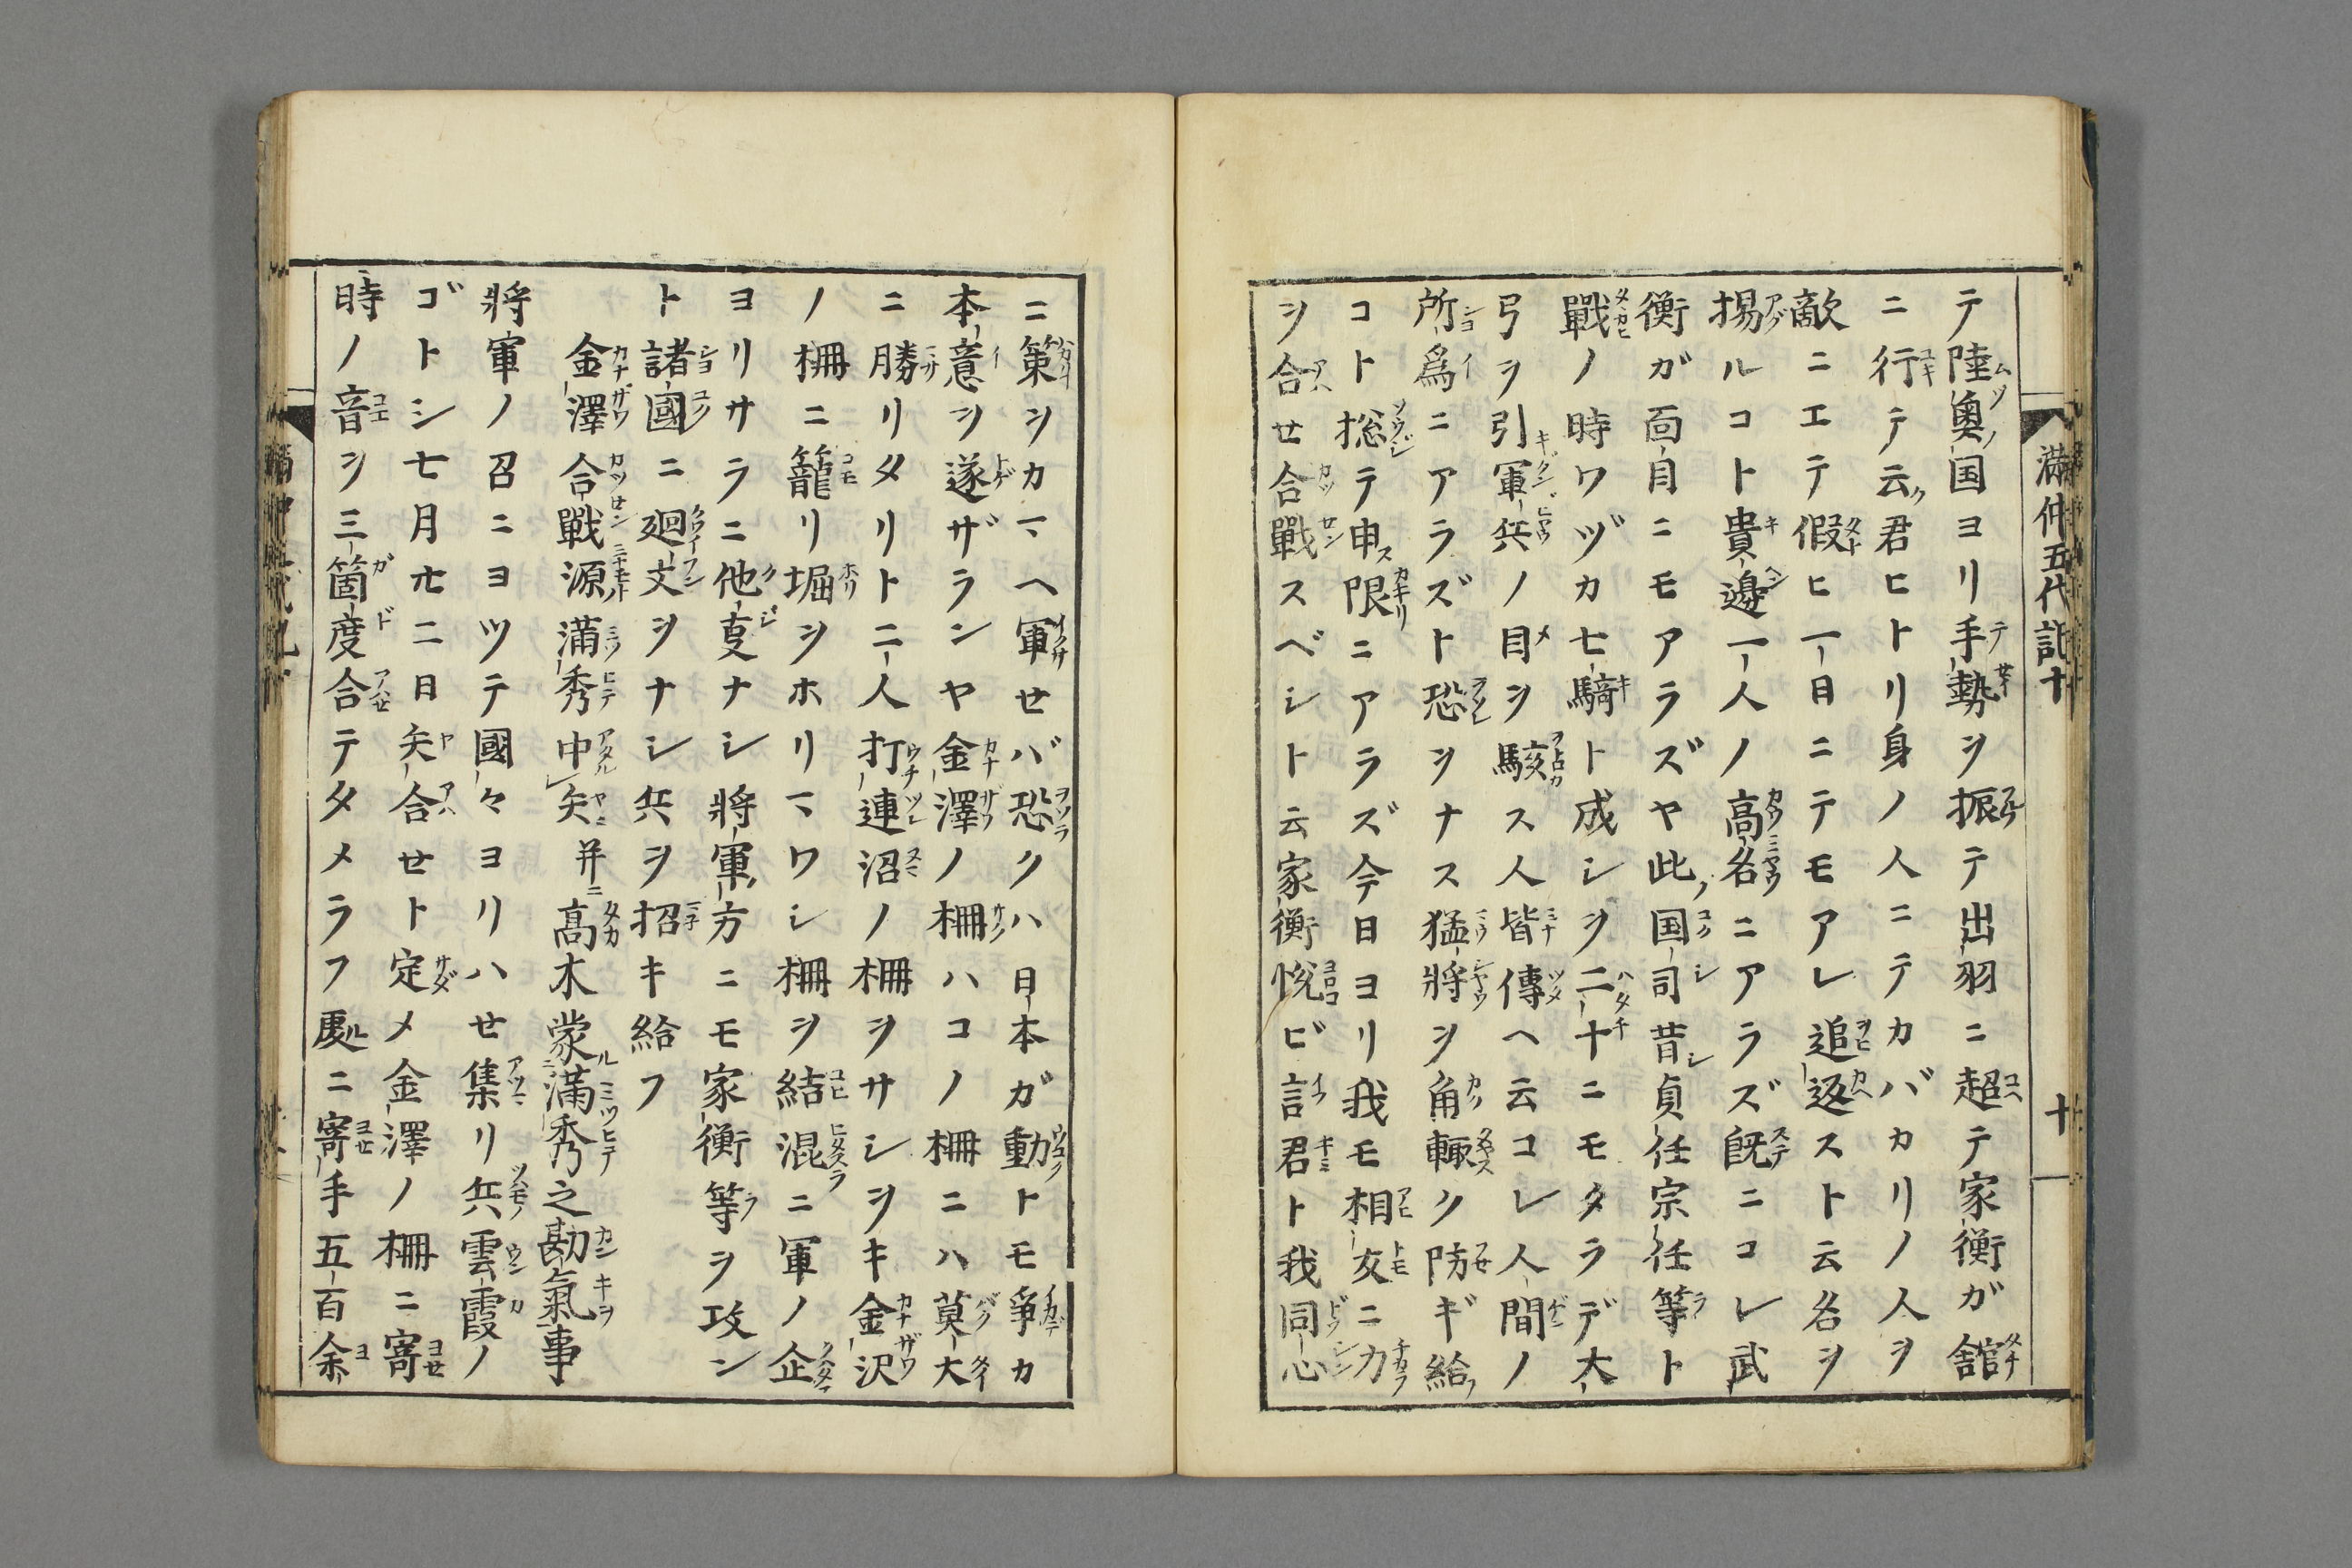 満仲五代記十　十
テ陸奥国ヨリ手勢ヲ振テ出羽ニ超テ家衡ガ舘
ニ行テ云君ヒトリ身ノ人ニテカバカリノ人ヲ
敵ニエテ假ヒ一日ニテモアレ追返スト云名ヲ
揚ルコト貴邊一人ノ高名ニアラズ既ニコレ武
衡ガ面目ニモアラズヤ此国司昔貞任宗任等ト
戰ノ時ワヅカ七騎ト成シヲ二十ニモタラデ大
弓ヲ引軍兵ノ目ヲ駭ス人皆傳ヘ云コレ人間ノ
所爲ニアラズト恐ヲナス猛將ヲ角輙ク防ギ給
コト総テ申限ニアラズ今日ヨリ我モ相友ニ力
ヲ合せ合戰スベシト云家衡悦ビ言君ト我同心
ニ策ヲカマヘ軍せバ恐クハ日本ガ動トモ爭カ
本意ヲ遂ザランヤ金澤ノ柵ハコノ柵ニハ莫大
ニ勝リタリト二人打連沼ノ柵ヲサシヲキ金沢
ノ柵ニ籠リ堀ヲホリマワシ柵ヲ結混ニ軍ノ企
ヨリサラニ他叓ナシ將軍方ニモ家衡等ヲ攻ン
ト諸國ニ廻文ヲナシ兵ヲ招キ給フ
金澤合戰源滿秀中矢并高木蒙滿秀之勘氣事
將軍ノ召ニヨツテ國々ヨリハせ集リ兵雲霞ノ
ゴトシ七月廿二日矢合せト定メ金澤ノ柵ニ寄
時ノ音ヲ三箇度合テタメラフ處ニ寄手五百余